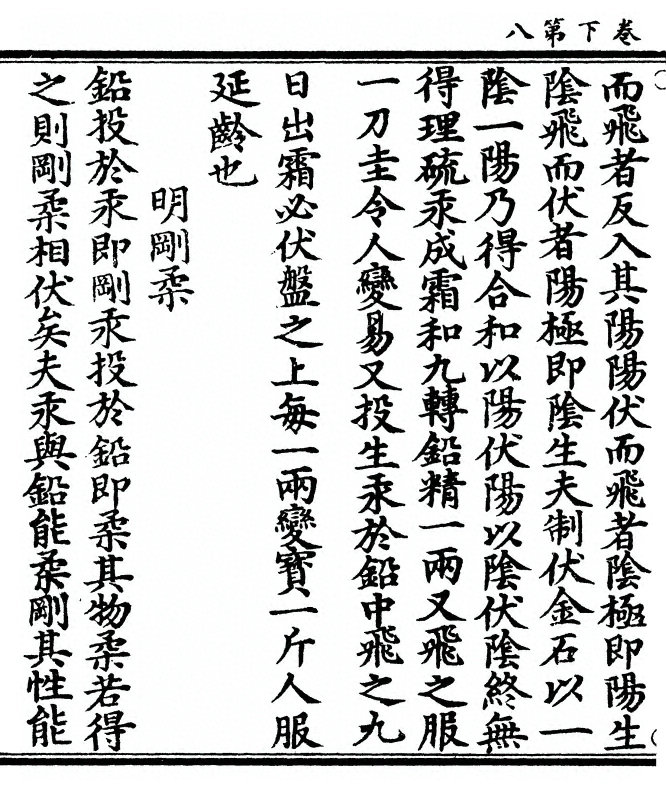 卷下第八
而飛者反入其陽陽伏而飛者陰極即陽生
陰飛而伏者陽極即陰生夫制伏金石以一
陰一陽乃得合和以陽伏陽以陰伏陰終無
得理硫汞成霜和九轉鉛精一兩又飛之服
一刀圭令人變易又投生汞於鉛中飛之九
日出霜必伏盤之上每一兩變寶一斤人服
延齡也
明剛柔
鉛投於汞即剛汞投於鉛即柔其物柔若得
之則剛柔相伏矣夫汞與鉛能柔剛其性能